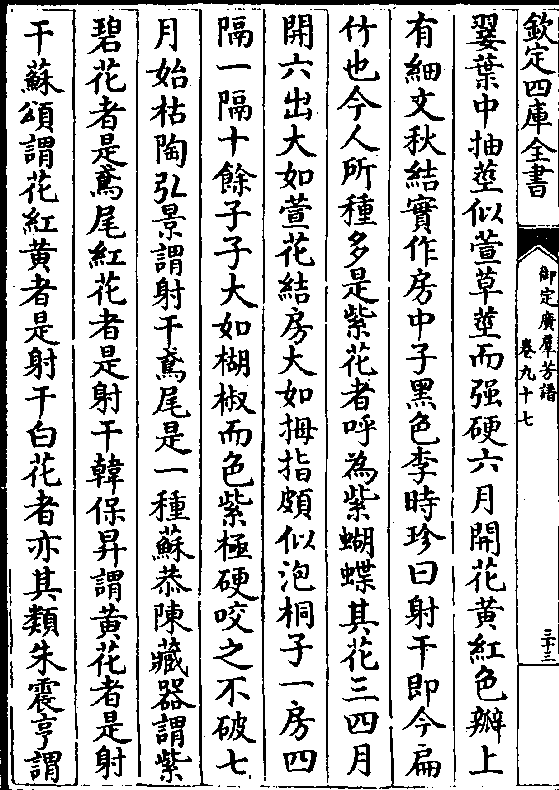 欽定四庫全書
御定廣羣芳譜
卷九十七
三十三
翣葉中抽莖似萱草莖而强硬六月開花黄紅色瓣上
有細文秋結實作房中子黑色李時珍曰射干即今扁
竹也今人所種多是紫花者呼為紫蝴蝶其花三四月
開六出大如萱花結房大如拇指頗似泡桐子一房四
隔一隔十餘子子大如椒而色紫極硬咬之不破七
月始枯陶弘景謂射干鳶尾是一種蘇恭陳藏器謂紫
碧花者是鳶尾紅花者是射干韓保昇謂黄花者是射
干蘇頌謂花紅黄者是射干白花者亦其類朱震亨謂